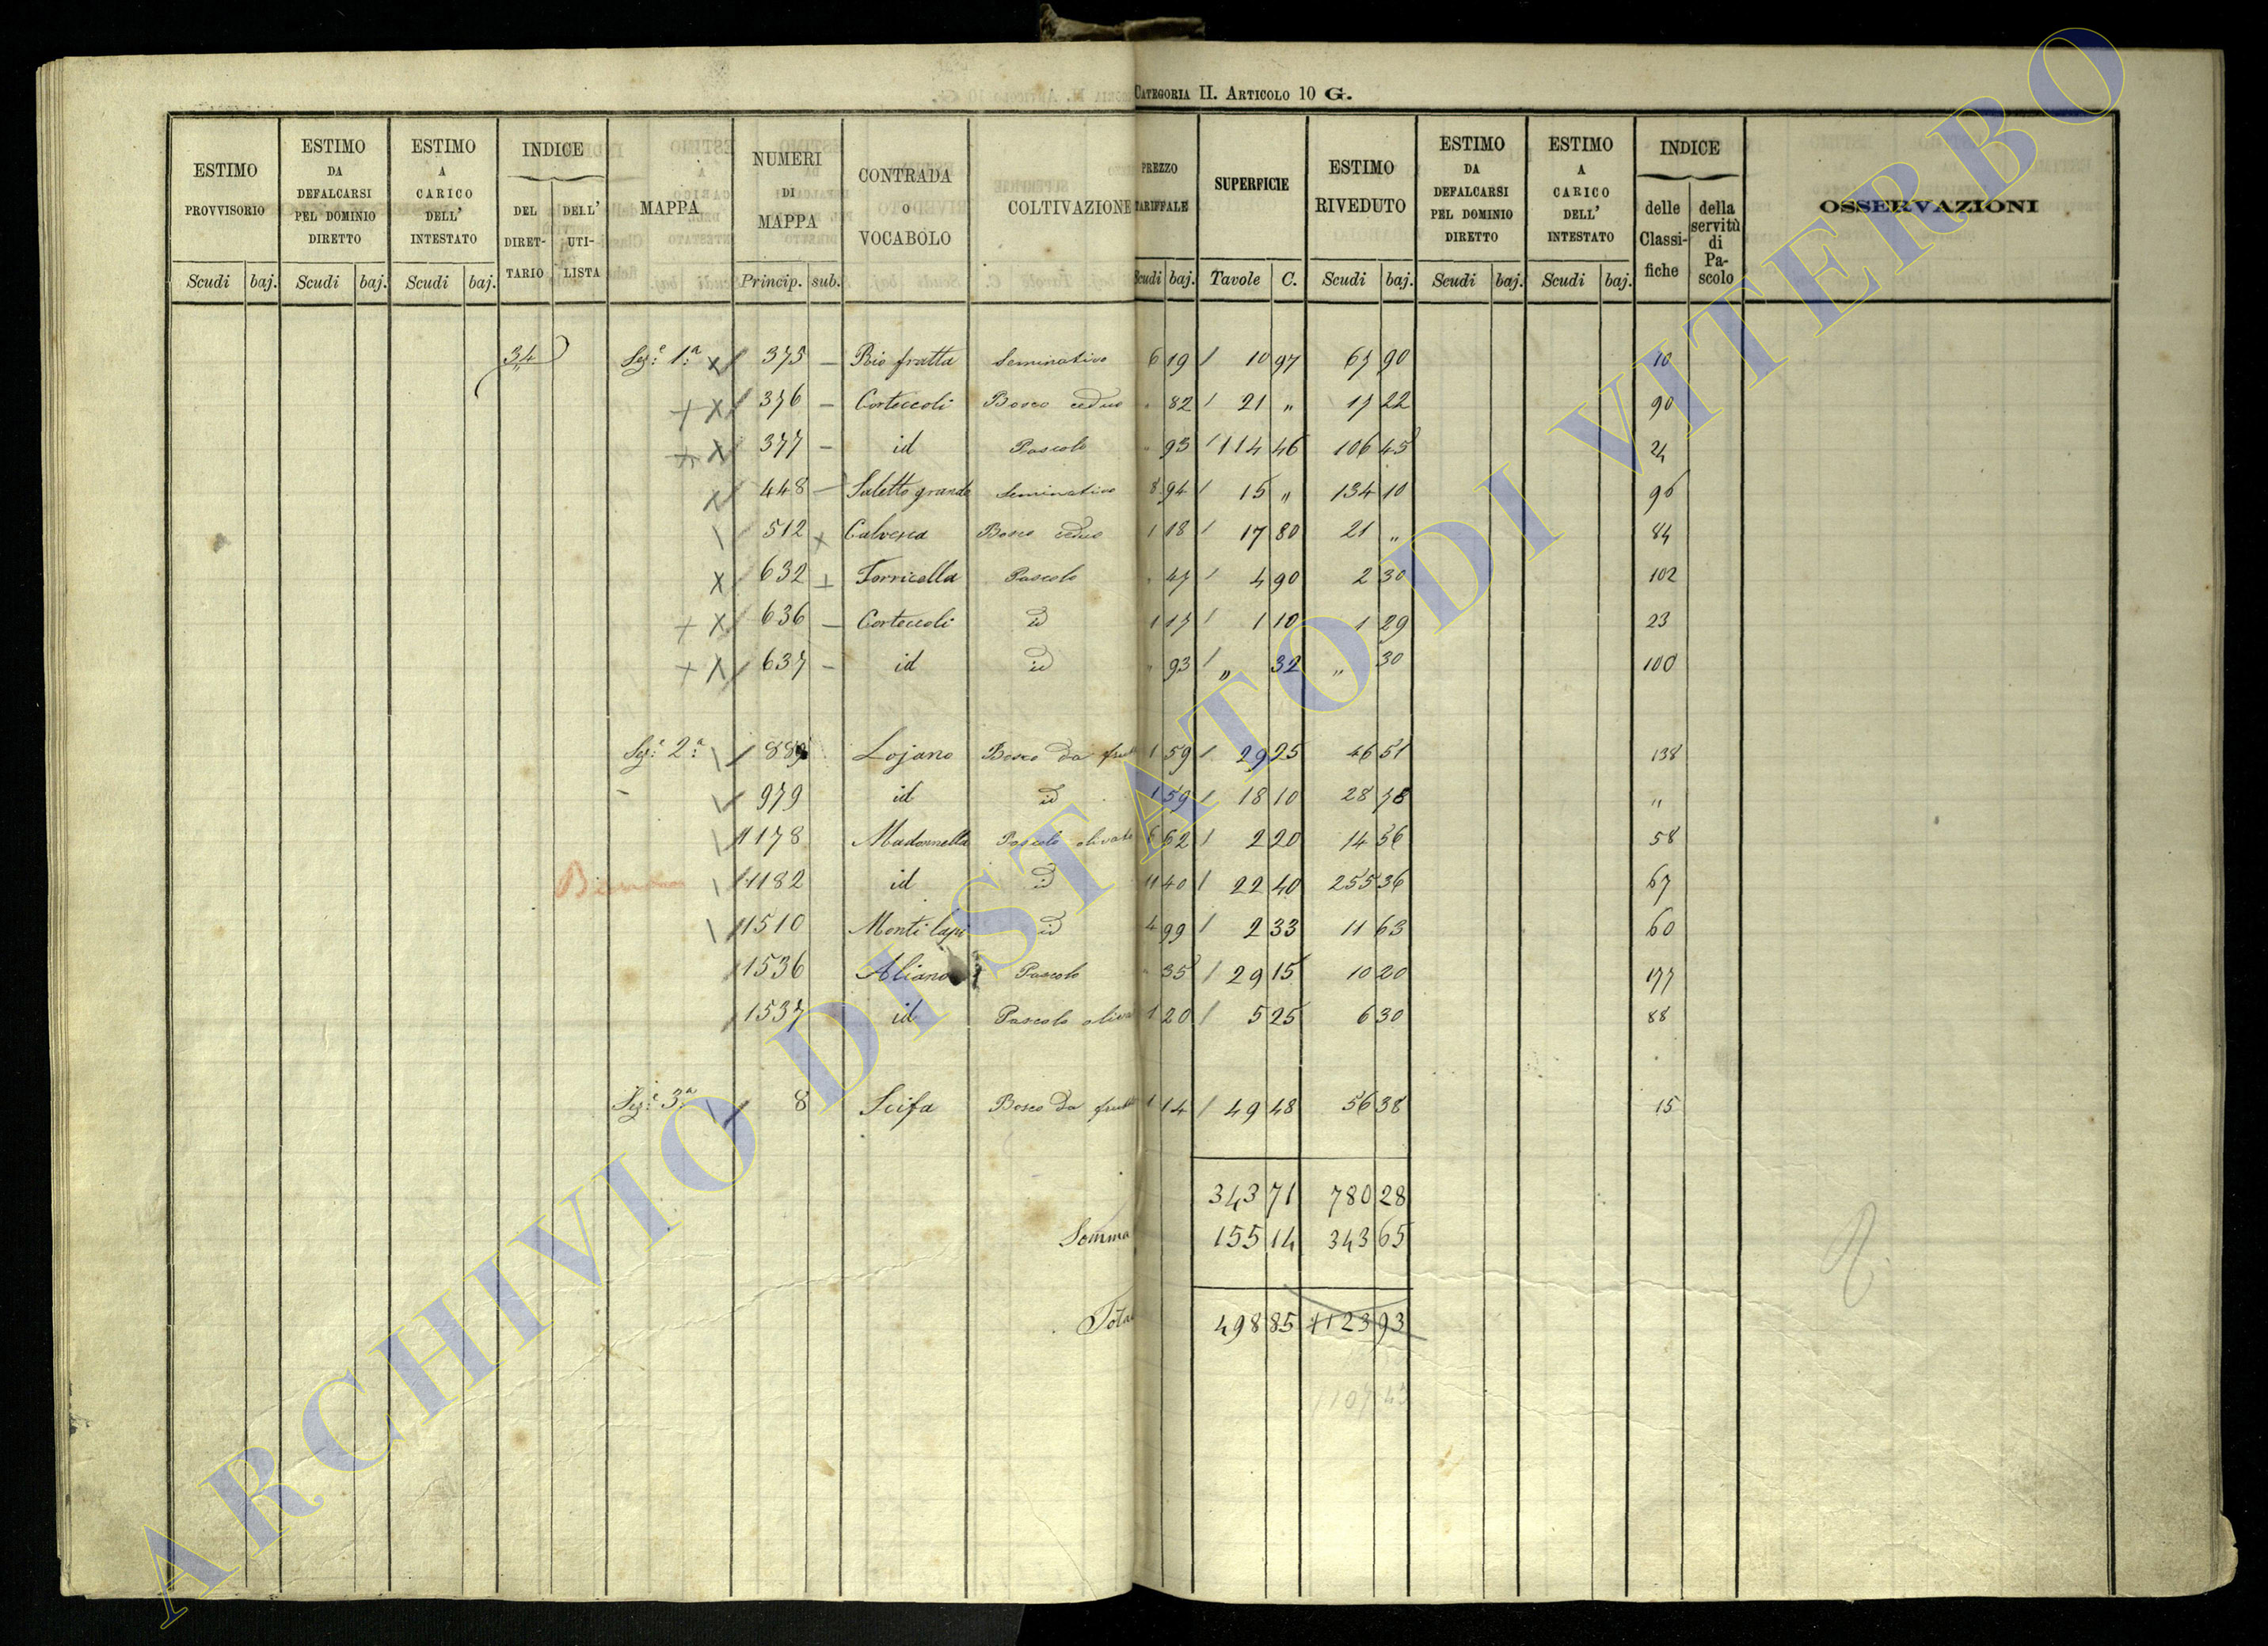 CATEGORIA II. ARTICOLO 10 G.
ESTIMO PROVVISORIO Scudi baj.
ESTIMO DA DEFALCARSI PEL DOMINIO DIRETTO Scudi baj.
ESTIMO A CARICO DELL' INTESTATO Scudi baj.
INDICE DEL DIRET-TARIO DELL' UTI-LISTA
MAPPA
NUMERI DI MAPPA Princip. sub.
CONTRADA O VOCABOLO
COLTIVAZIONE
PREZZO TARIFFALE Scudi baj.
SUPERFICIE Tavole C.
ESTIMO RIVEDUTO Scudi baj.
ESTIMO DA DEFALCARSI PEL DOMINIO DIRETTO Scudi baj.
ESTIMO A CARICO DELL' INTESTATO Scudi baj.
INDICE delle Classi-fiche della servitù di Pa-scolo
OSSERVAZIONI
34 Sez.e 1.a 375 — Rio fratta Seminativo 6 19 10 97 67 90 10
376 — Corteccoli Bosco ceduo " 82 21 " 17 22 90
377 — id Pascolo " 93 114 46 106 45 24
448 — Saletto grande Seminativo 8 94 15 " 134 10 96
512 Calvesca Bosco ceduo 1 18 17 80 21 " 84
632 Torricella Pascolo " 47 4 90 2 30 102
636 — Corteccoli id 1 17 1 10 1 29 23
637 — id id " 93 " 32 " 30 100
Sez.e 2.a 889 Lojano Bosco da frutto 1 59 29 25 46 51 138
979 id id 1 59 18 10 28 78 "
1178 Madonnella Pascolo olivato 6 62 2 20 14 56 58
1182 id id 11 40 22 40 255 36 67
1510 Monti lapi id 4 99 2 33 11 63 60
1536 Aliano Pascolo " 35 29 15 10 20 177
1537 id Pascolo oliva 1 20 5 25 6 30 88
Sez.e 3.a 8 Scifa Bosco da frutto 1 14 49 48 56 38 15
343 71 780 28
Somma 155 14 343 65
Total 498 85 1123 93
1107 43
ARCHIVIO DI STATO DI VITERBO